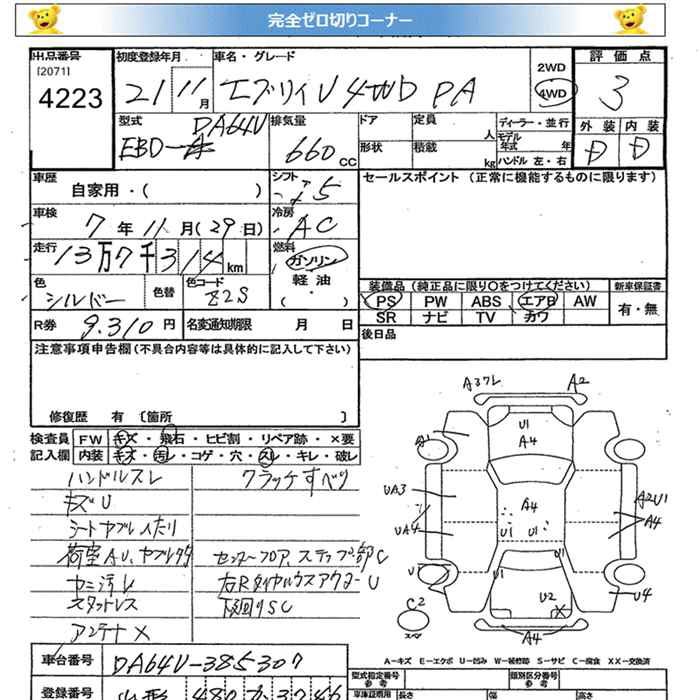 完全ゼロ切りコーナー
出品番号 初度登録年月 車名・グレード 2WD 評価点
[2071]
4223 21 11月 エブリイV 4WD PA 4WD 3
型式 DA64V 排気量 ドア 定員 人 ディーラー・並行 外装 内装
EBD- 660cc 形状 積載 kg モデル年式 年 ハンドル 左・右 D D
車歴 シフト セールスポイント (正常に機能するものに限ります)
自家用・( ) 5
車検 7年 11月(29日) 冷房 AC
走行 13万7千314km 燃料 ガソリン
軽油
・( )
色 シルバー 色替 色コード Z2S
装備品 (純正品に限り○をつけてください) 新車保証書
PS PW ABS エアB AW 有・無
SR ナビ TV カワ
R券 9.310円 名変通知期限 月 日 後日品
注意事項申告欄(不具合内容等は具体的に記入して下さい)
修復歴 有 〔箇所 〕
検査員 FW キズ・飛石・ヒビ割・リペア跡・×要
記入欄 内装 キズ・汚レ・コゲ・穴・スレ・キレ・破レ
ハンドルスレ クラッチすべり
キズU
シートヤブレ
荷室AU、ヤブレ センターフロア、ステップ部C
ヤニ汚レ U
スタットレス 下廻りSC
アンテナ×
A37レ A2
U1
A4
UA3 A4 A2U1
A4
UA4 U1 U1
U1 U1
U2 U4
C2
スペ
A4
A-キズ E-エクボ U-凹み W-補修跡 S-サビ C-腐食 XX-交換済
車台番号 DA64V-385307
型式指定番号 類別区分番号
参考 参考
登録番号 山形 480
車庫証明用 長さ 幅 高さ